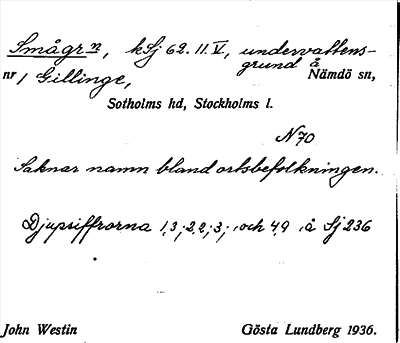 Smågrn, kSj 62. II. V, undervattens-
grund å
nr, Gillinge, Nämdö sn,
Sotholms hd, Stockholms l.
N 70
Saknar namn bland ortsbefolkningen.
Djupsiffrorna 1,3; 2,2; 3; och 4,9 å Sj 236
John Westin Gösta Lundberg 1936.